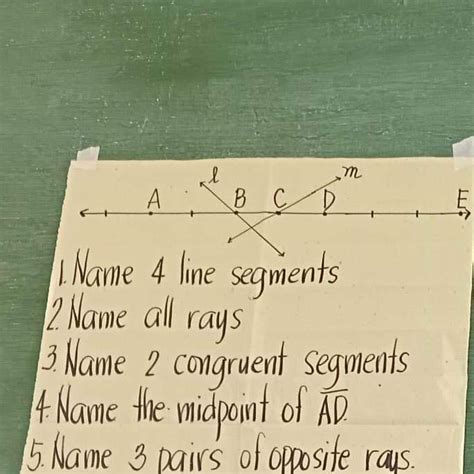 l m
A B C D E
1. Name 4 line segments
2. Name all rays
3. Name 2 congruent segments
4. Name the midpoint of A̅D̅.
5. Name 3 pairs of opposite rays.